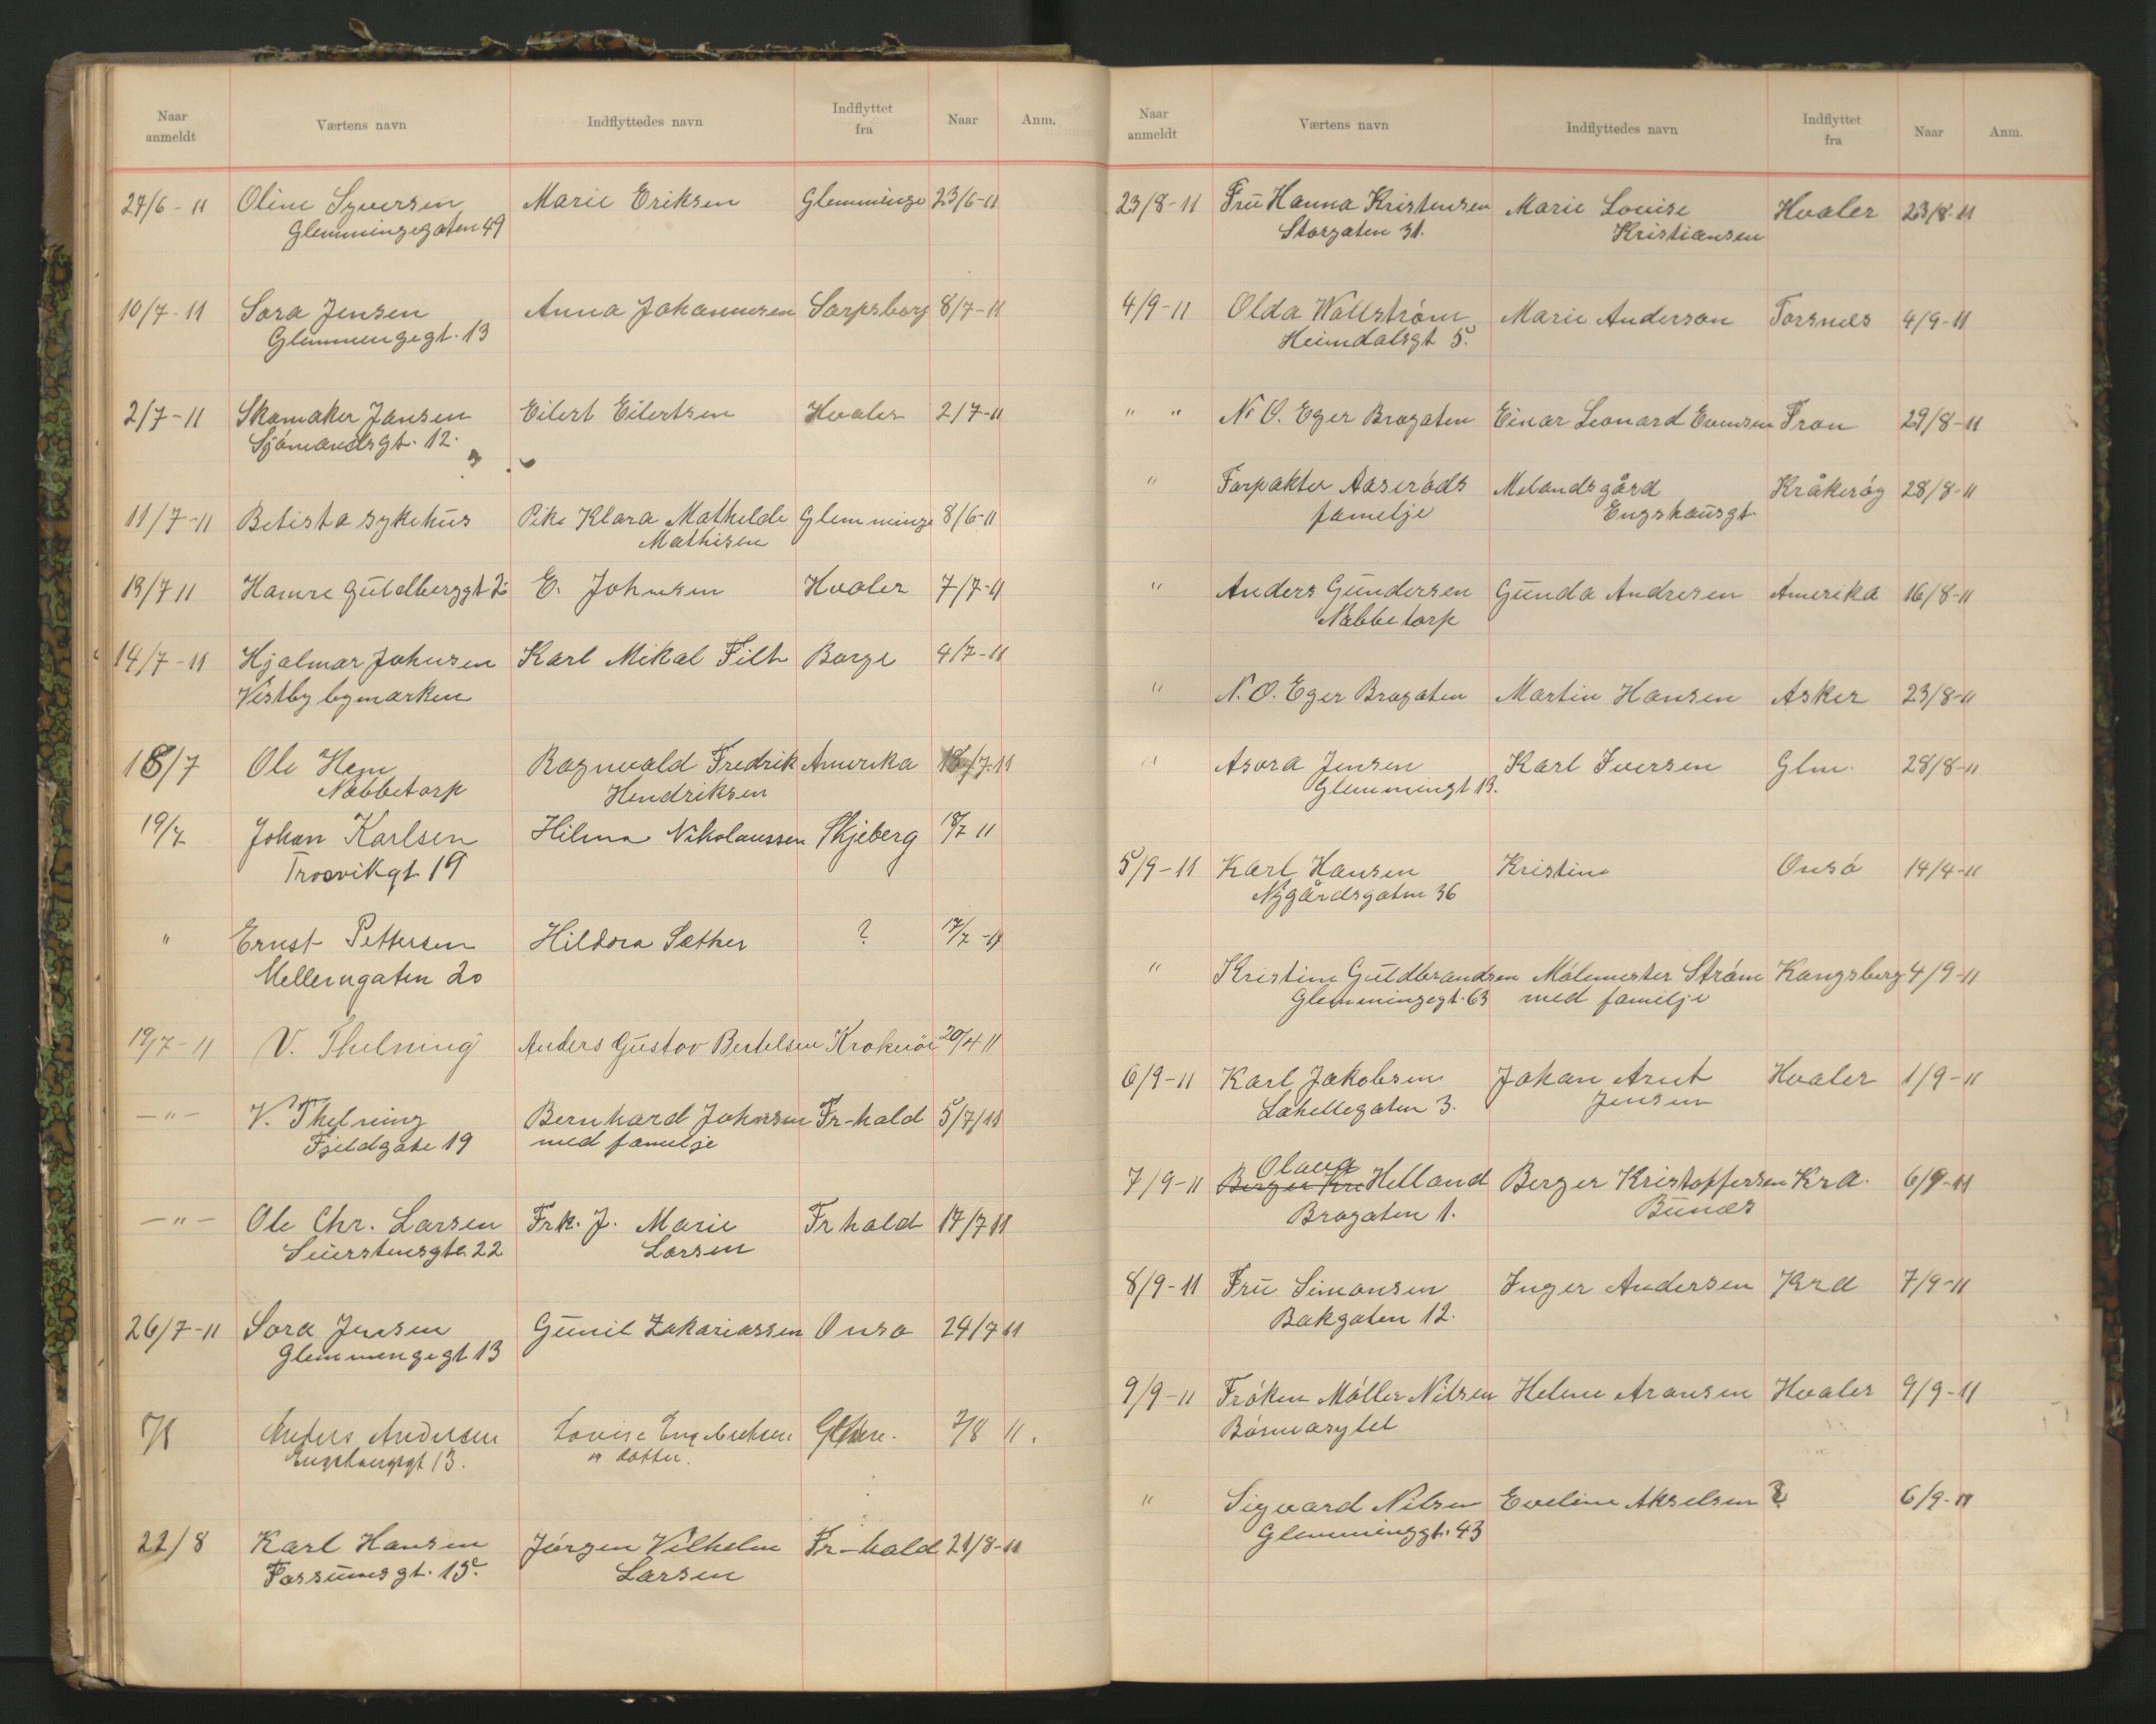 Naar anmeldt Værtens navn Indflyttedes navn Indflyttet fra Naar Anm.
27/6-11 Oline Syversen Marie Eriksen Glemminge 23/6-11
Glemmingegaten 49
10/7-11 Sora Jensen Anna Johannesen Sarpsborg 8/7-11
Glemmengegt. 13
2/7-11 Skomaker Jansen Eilert Eilertsen Hvaler 2/7-11
Sjömandsgt. 12.
11/7-11 Betista sykehus Pike Klara Mathilde Glemminge 8/6-11
Mathisen
13/7 11 Hamre Guldberggt 2 E. Johnsen Hvaler 7/7-11
14/7-11 Hjalmar Johnsen Karl Mikal Filt Borge 4/7-11
Vestby bymarken
18/7 Ole Hem Ragnvald Fredrik Amerika 18/7-11
Nabbetorp Hendriksen
19/7 Johan Karlsen Hilma Nikolaussen Skjeberg 18/7 11
Trosvikgt 19
" Ernst Pettersen Hildora Sæther ? 17/7-11
Mellemgaten 20
19/7-11 V. Thelning Anders Gustav Bertelsen Krokeröi 20/4 11
-"- V. Thelning Bernhard Johnsen Fr-hald 5/7/11
Fjeldgate 19 med familje
-"- Ole Chr. Larsen Frk. J. Marie Fr hald 17/7 11
Seierstensgt. 22 Larsen
26/7-11 Sora Jensen Gunil Zakariassen Onso 24/7 11
Glemmengegt 13
Anders Andersen Louise Engebretsen 7/8 11.
Engehaugsgt 13. og datter.
22/8 Karl Hansen Jörgen Vilhelm Fr-hald 21/8-11
Fossumsgt. 15. Larsen
Naar anmeldt Værtens navn Indflyttedes navn Indflyttet fra Naar Anm.
23/8-11 Fru Hanna Kristensen Marie Louise Hvaler 23/8-11
Storgaten 31. Kristiansen
4/9-11 Olda Wallström Marie Anderson Torsnes 4/9-11
Heimdalsgt 5.
" " N. O. Eger Brogaten Einar Leonard Evensen Fron 29/8-11
" Forpakter Aaseröds Melandsgård Kråkeröy 28/8-11
familje Engshausgt.
" Anders Gundersen Gunda Andresen Amerika 16/8-11
Nabbetorp
" N. O. Eger Brogaten Martin Hansen Asker 23/8-11
" Asora Jensen Karl Iversen Glm. 28/8-11
Glemmingt 13.
5/9-11 Karl Hansen Kristine Onsö 14/4-11
Nygårdsgaten 36
" Kristine Guldbrandsen Målemester Ström Kongsberg 4/9-11
Glemmingegt. 63 med familje
6/9-11 Karl Jakobsen Johan Arnt Hvaler 1/9-11
Lahellegaten 3. Jensen
Olava
7/9-11 Berger Kri Helland Berger Kristoffersen Kra. 6/9-11
Brogaten 1. Bunæs
8/9-11 Fru Simonsen Inger Andersen Kra 7/9-11
Bakgaten 12.
9/9-11 Fröken Möller Nilsen Helene Aronsen Hvaler 9/9-11
Börneasylet
" Sigvard Nilsen Eveline Akselsen ? 6/9-11
Glemminggt. 43